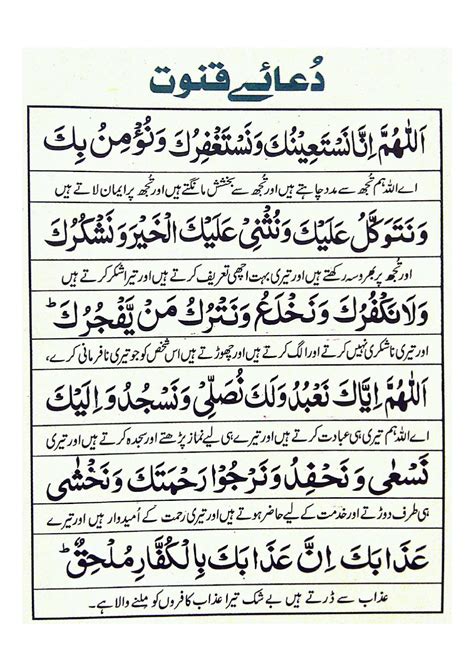 دُعائے قنوت
اَللّٰهُمَّ اِنَّا نَسْتَعِيْنُكَ وَنَسْتَغْفِرُكَ وَنُؤْمِنُ بِكَ
اے اللہ ہم تجھ سے مدد چاہتے ہیں اور تجھ سے بخشش مانگتے ہیں اور تجھ پر ایمان لاتے ہیں
وَنَتَوَكَّلُ عَلَيْكَ وَنُثْنِىْ عَلَيْكَ الْخَيْرَ وَنَشْكُرُكَ
اور تجھ پر بھروسہ رکھتے ہیں اور تیری بہت اچھی تعریف کرتے ہیں اور تیرا شکر کرتے ہیں
وَلَا نَكْفُرُكَ وَنَخْلَعُ وَنَتْرُكُ مَنْ يَّفْجُرُكَ ؕ
اور تیری ناشکری نہیں کرتے اور الگ کرتے اور چھوڑتے ہیں اس شخص کو جو تیری نافرمانی کرے،
اَللّٰهُمَّ اِيَّاكَ نَعْبُدُ وَلَكَ نُصَلِّىْ وَنَسْجُدُ وَاِلَيْكَ
اے اللہ ہم تیری ہی عبادت کرتے ہیں اور تیرے ہی لیے نماز پڑھتے اور سجدہ کرتے ہیں اور تیری
نَسْعٰى وَنَحْفِدُ وَنَرْجُوْا رَحْمَتَكَ وَنَخْشٰى
ہی طرف دوڑتے اور خدمت کے لیے حاضر ہوتے ہیں اور تیری رحمت کے اُمیدوار ہیں اور تیرے
عَذَابَكَ اِنَّ عَذَابَكَ بِالْكُفَّارِ مُلْحِقٌ ؕ
عذاب سے ڈرتے ہیں بے شک تیرا عذاب کافروں کو ملنے والا ہے۔